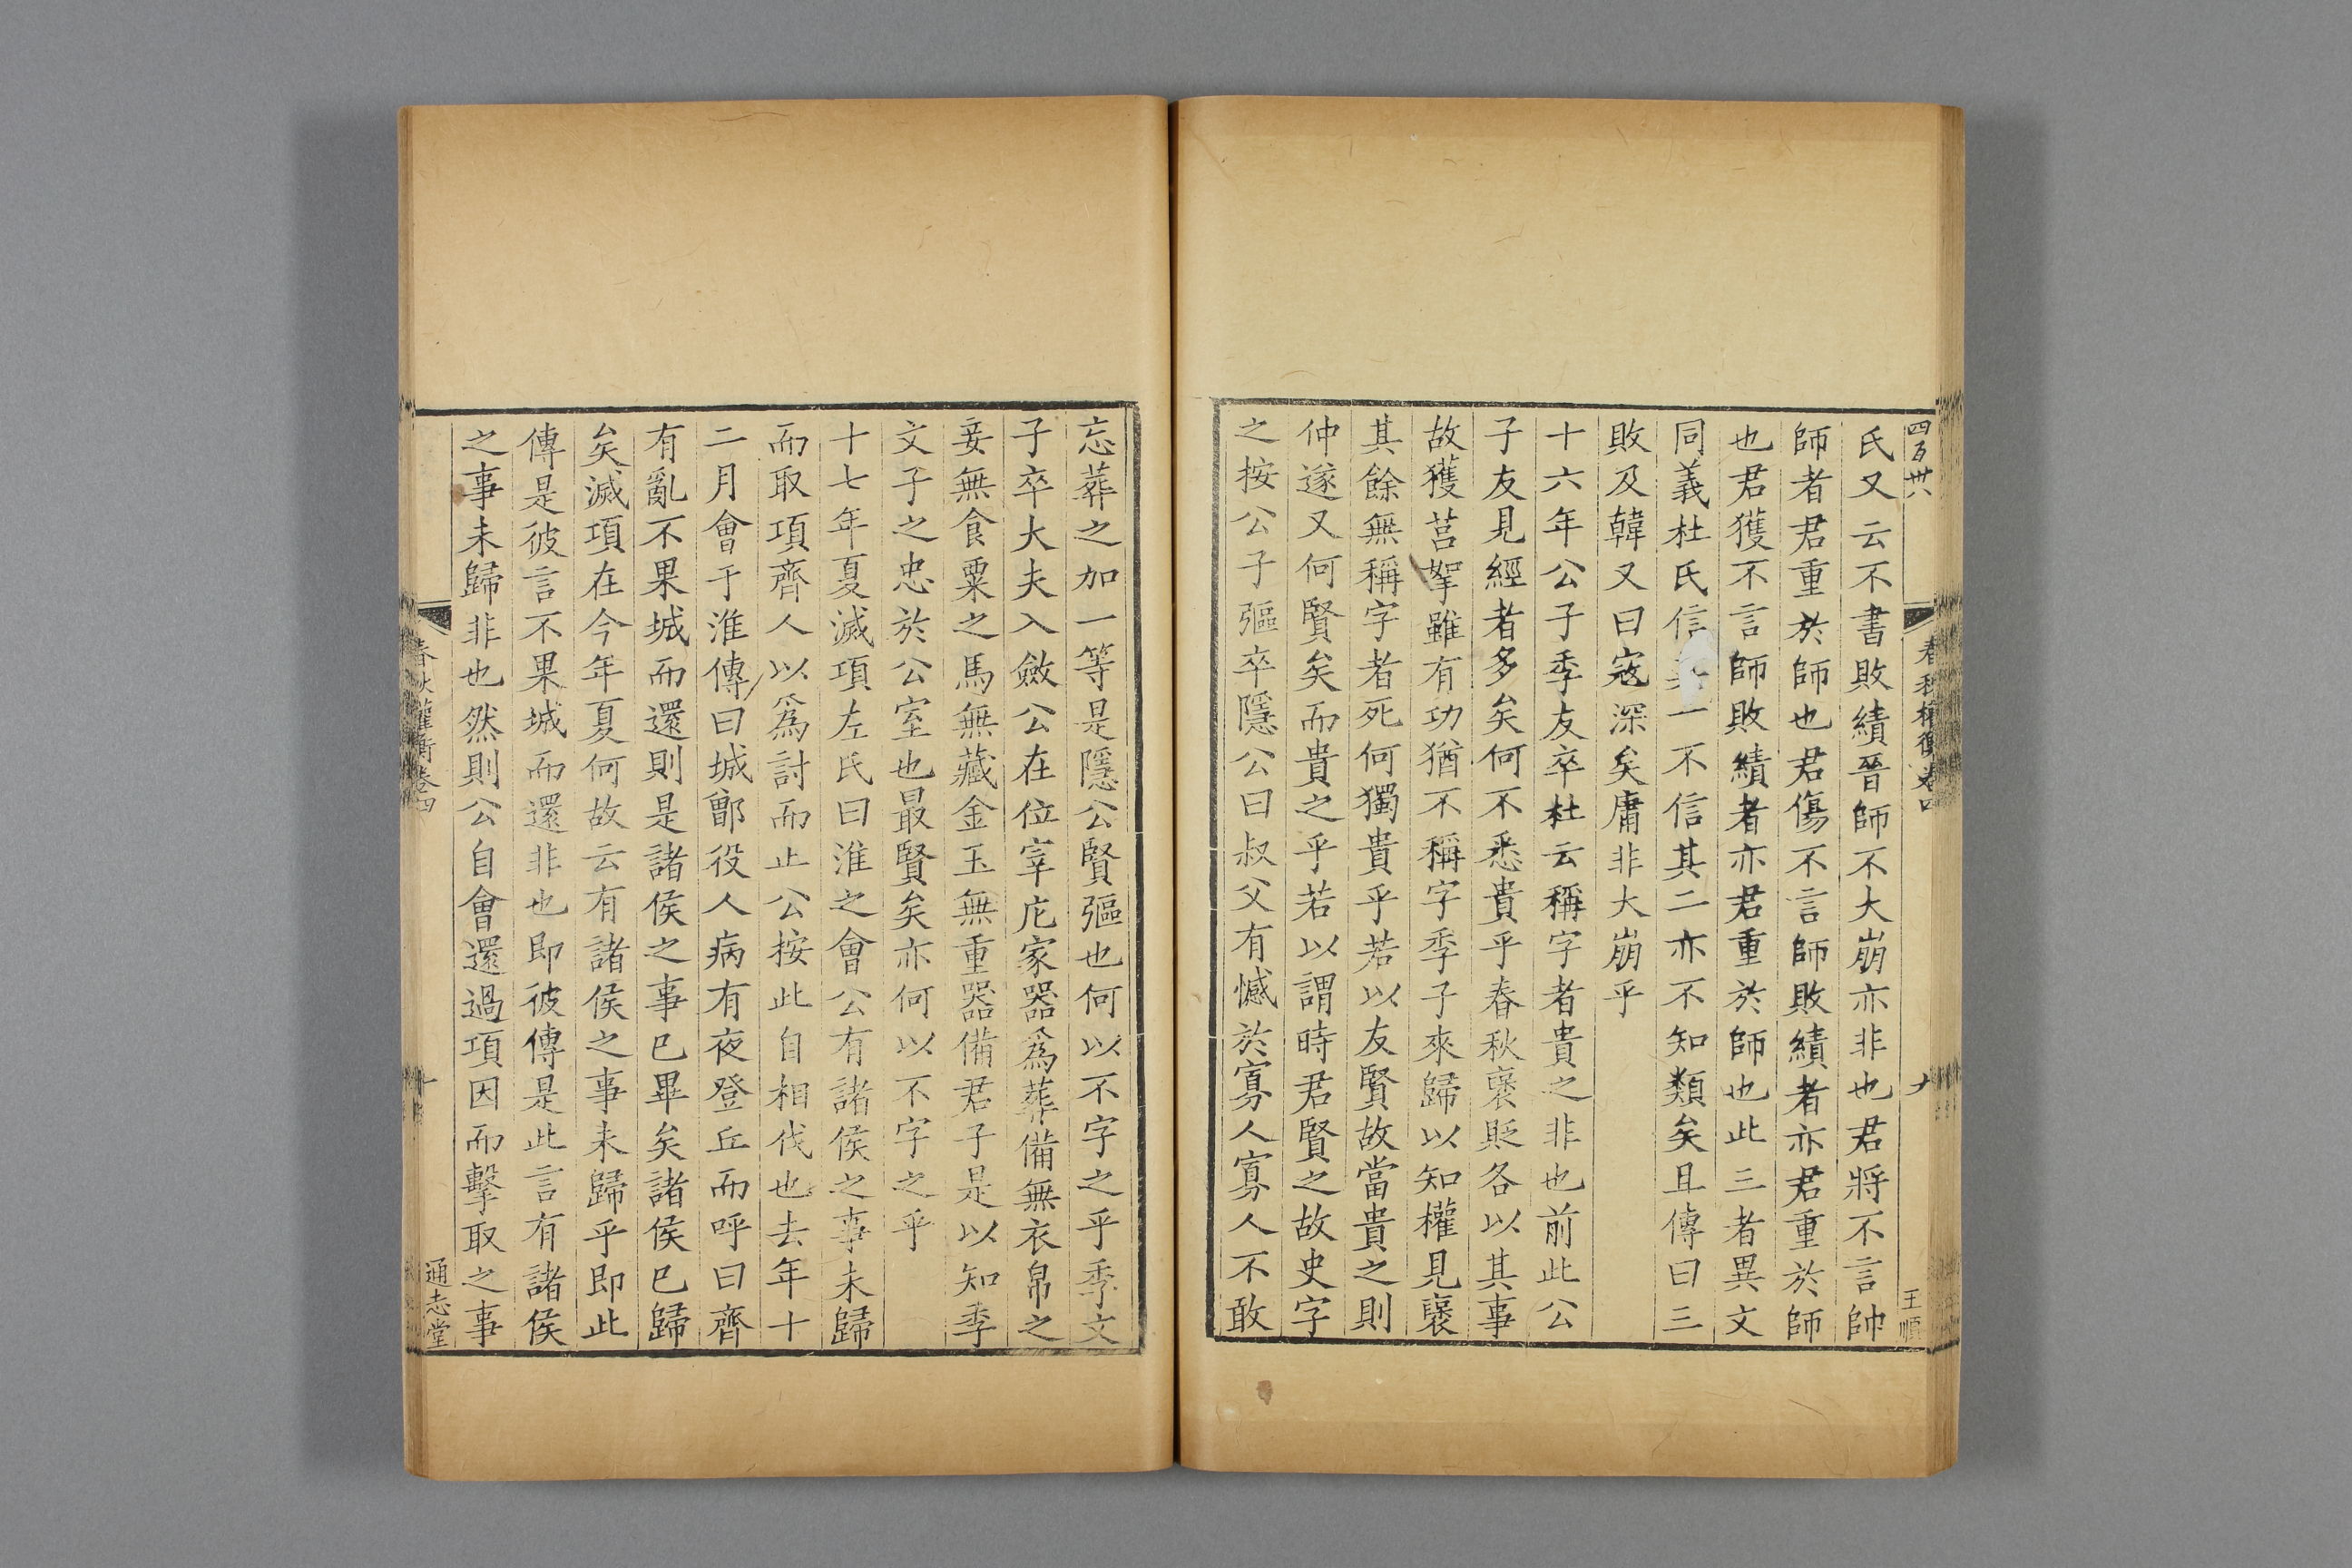 四百卅六
春秋權衡卷四
九
王順
氏又云不書敗績晉師不大崩亦非也君將不言帥
師者君重於師也君傷不言師敗績者亦君重於師
也君獲不言師敗績者亦君重於師也此三者異文
同義杜氏信其一不信其二亦不知類矣且傳曰三
敗及韓又曰寇深矣庸非大崩乎
十六年公子季友卒杜云稱字者貴之非也前此公
子友見經者多矣何不悉貴乎春秋襃貶各以其事
故獲莒挐雖有功猶不稱字季子來歸以知權見襃
其餘無稱字者死何獨貴乎若以友賢故當貴之則
仲遂又何賢矣而貴之乎若以謂時君賢之故史字
之按公子彄卒隱公曰叔父有憾於寡人寡人不敢
忘葬之加一等是隱公賢彄也何以不字之乎季文
子卒大夫入斂公在位宰庀家器爲葬備無衣帛之
妾無食粟之馬無藏金玉無重器備君子是以知季
文子之忠於公室也最賢矣亦何以不字之乎
十七年夏滅項左氏曰淮之會公有諸侯之事未歸
而取項齊人以爲討而止公按此自相伐也去年十
二月會于淮傳曰城鄫役人病有夜登丘而呼曰齊
有亂不果城而還則是諸侯之事已畢矣諸侯已歸
矣滅項在今年夏何故云有諸侯之事未歸乎即此
傳是彼言不果城而還非也即彼傳是此言有諸侯
之事未歸非也然則公自會還過項因而擊取之事
春秋權衡卷四
十
通志堂